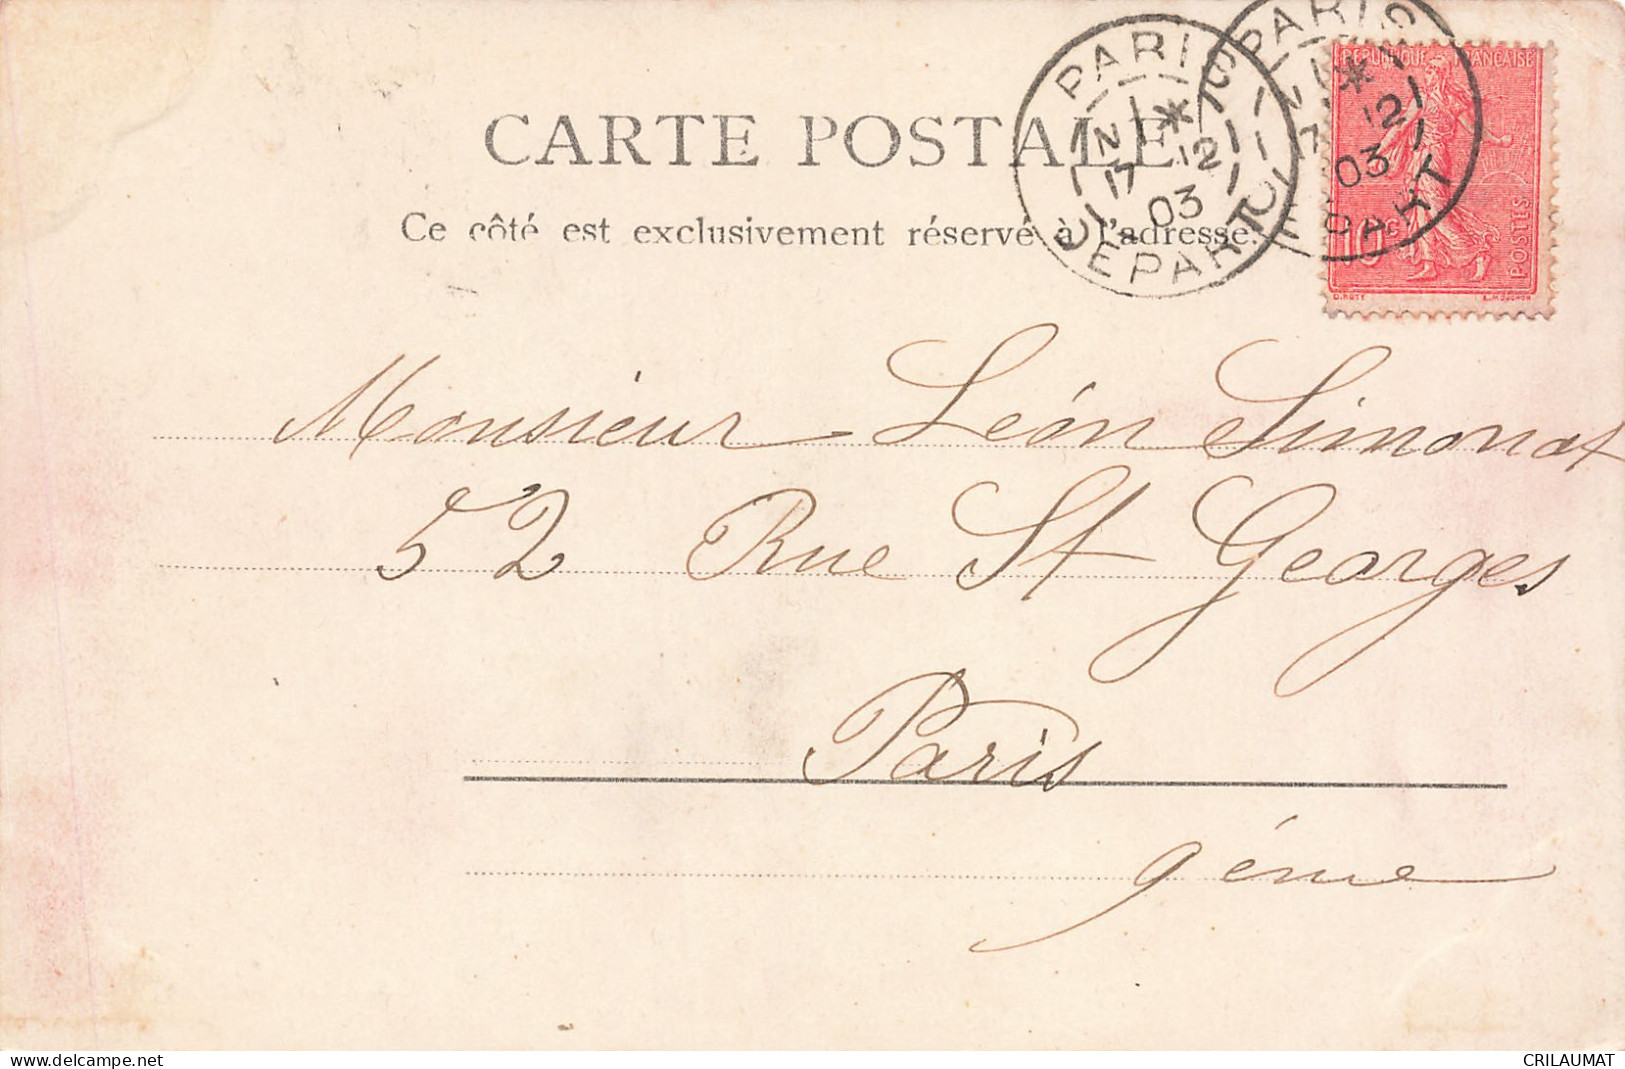 CARTE POSTALE
Ce côté est exclusivement réservé à l'adresse.
PARIS
17 12
03
DEPART
PARIS
12
03
DEPART
REPUBLIQUE FRANÇAISE
10 c
POSTES
O. ROTY
E. MOUCHON
Monsieur Léon Simonat
52 Rue St Georges
Paris
9éme
www.delcampe.net
CRILAUMAT